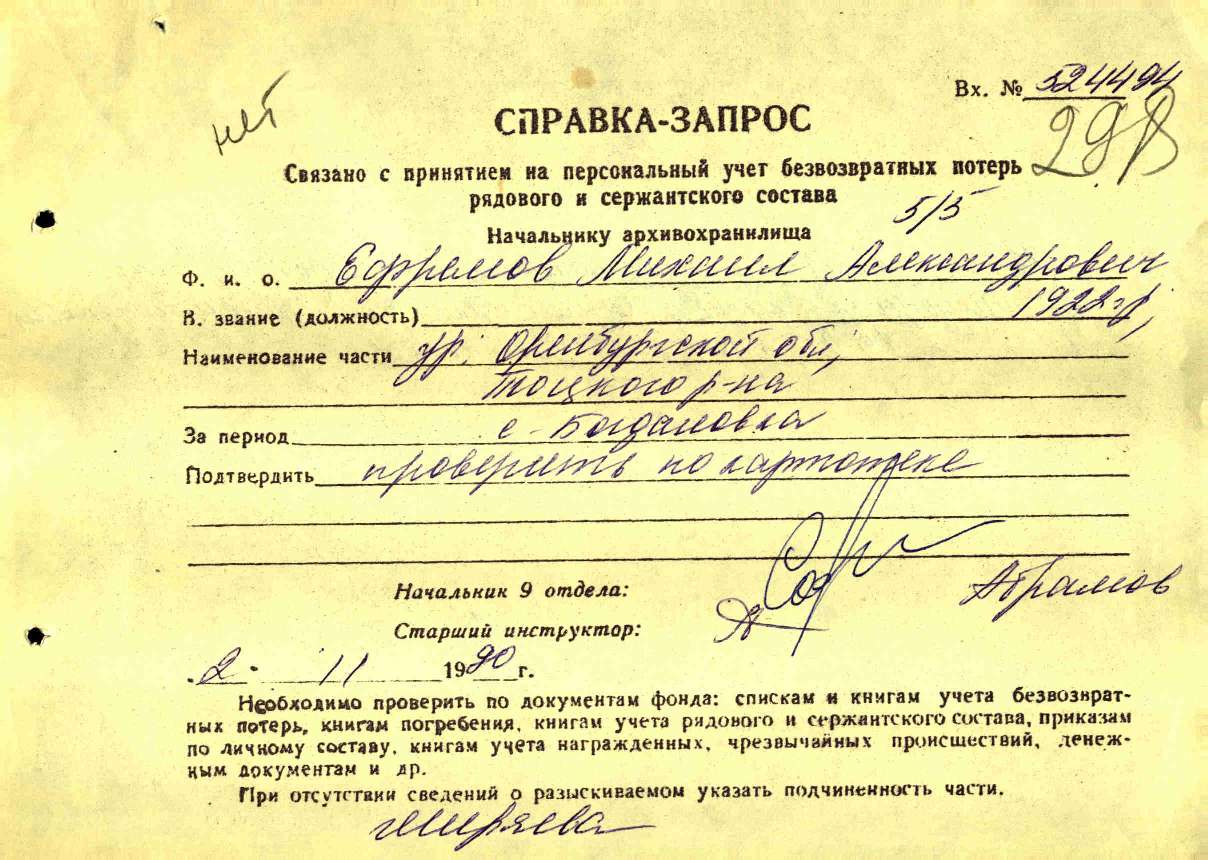 нет
Вх. № 524494
СПРАВКА-ЗАПРОС
Связано с принятием на персональный учет безвозвратных потерь
рядового и сержантского состава
5/5
Начальнику архивохранилища
Ф. и. о. Ефремов Михаил Александрович
В. звание (должность) 1922 г.р,
Наименование части ур. Оренбургской обл,
Тоцкого р-на
За период с-Богдановка
Подтвердить проверить по картотеке
Начальник 9 отдела: Абрамов
Старший инструктор:
2 11 1990 г.
Необходимо проверить по документам фонда: спискам и книгам учета безвозврат-
ных потерь, книгам погребения, книгам учета рядового и сержантского состава, приказам
по личному составу, книгам учета награжденных, чрезвычайных происшествий, денеж-
ным документам и др.
При отсутствии сведений о разыскиваемом указать подчиненность части.